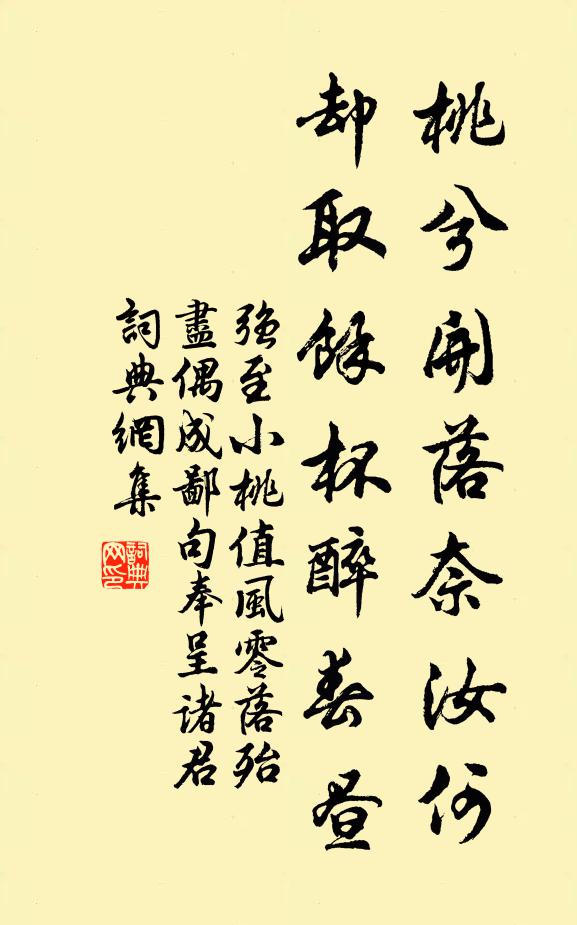 桃兮開落奈汝何
却取餘杯醉春晝
強至小桃值風零落殆
盡偶成鄙句奉呈諸君
詞典網集
詞典
网印